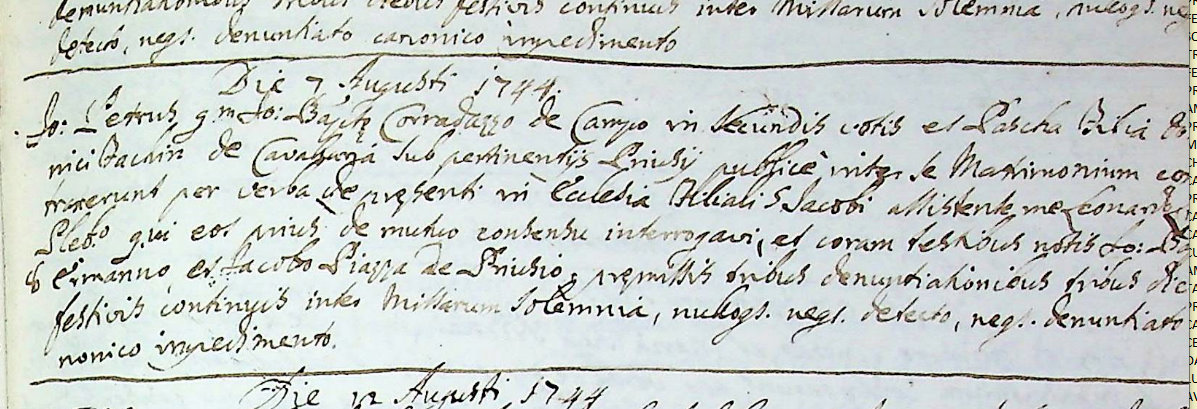 denuntiationibus tribus diebus festivis continuis inter Missarum Solemnia, nulloq;
detecto, neq;. denuntiato canonico impedimento
Die 7 Augusti 1744.
Jo: Petrus q.m Jo: Baptę Corradazzo de Campo in secundis votis et Pascha Filia
nici Bachin de de sub pertinentijs Priusij publicè inter se Matrimonium con
traxerunt per verba de pręsenti in Ecclesia Filiali S. Jacobi assistente me Leonardo
Pleb.o qui eos prius de mutuo consensu interrogavi, et coram testibus notis Jo:
Ermanno et Jacobo Piazza de Priusio, pręmissis tribus denuntiationibus tribus die
festivis continuis inter Missarum Solemnia, nulloq;. neq;. detecto, neq;. denuntiato
nonico impedimento.
Die 12 Augusti 1744